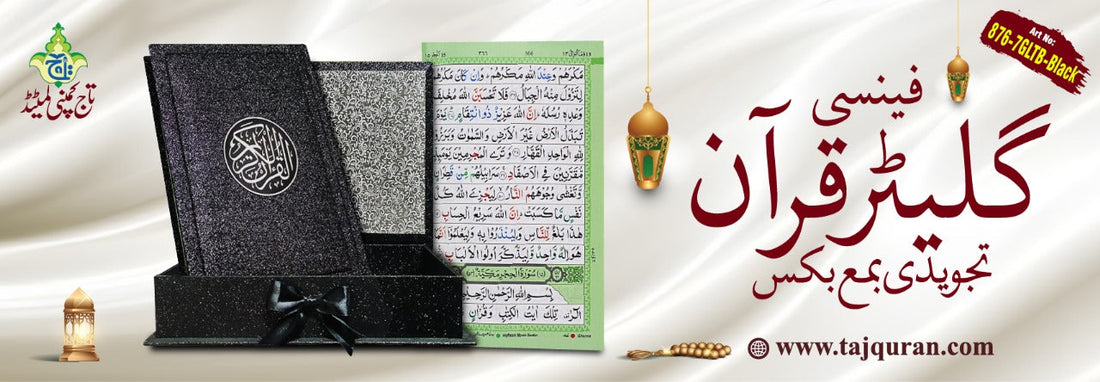 تاج کمپنی لمیٹڈ
القرآن الكريم
مَكْرَهُمْ وَعِنْدَ اللّٰهِ مَكْرُهُمْ وَاِنْ كَانَ مَكْرُهُمْ
لِتَزُوْلَ مِنْهُ الْجِبَالُ فَلَا تَحْسَبَنَّ اللّٰهَ مُخْلِفَ
وَعْدِهٖ رُسُلَهٗ اِنَّ اللّٰهَ عَزِيْزٌ ذُو انْتِقَامٍ يَوْمَ
تُبَدَّلُ الْاَرْضُ غَيْرَ الْاَرْضِ وَالسَّمٰوٰتُ وَبَرَزُوْا
لِلّٰهِ الْوَاحِدِ الْقَهَّارِ وَتَرَى الْمُجْرِمِيْنَ يَوْمَىِٕذٍ
مُّقَرَّنِيْنَ فِى الْاَصْفَادِ سَرَابِيْلُهُمْ مِّنْ قَطِرَانٍ
وَّتَغْشٰى وُجُوْهَهُمُ النَّارُ لِيَجْزِىَ اللّٰهُ كُلَّ
نَفْسٍ مَّا كَسَبَتْ اِنَّ اللّٰهَ سَرِيْعُ الْحِسَابِ
هٰذَا بَلٰغٌ لِّلنَّاسِ وَلِيُنْذَرُوْا بِهٖ وَلِيَعْلَمُوْا اَنَّمَا
هُوَ اِلٰهٌ وَّاحِدٌ وَّلِيَذَّكَّرَ اُولُوا الْاَلْبَابِ
سُوْرَةُ الْحِجْرِ مَكِّيَّةٌ
بِسْمِ اللّٰهِ الرَّحْمٰنِ الرَّحِيْمِ
الٓرٰ تِلْكَ اٰيٰتُ الْكِتٰبِ وَقُرْاٰنٍ
Art No:
876-7GLTB-Black
فینسی
گلیٹر قرآن
تجویدی بمع بکس
www.tajquran.com